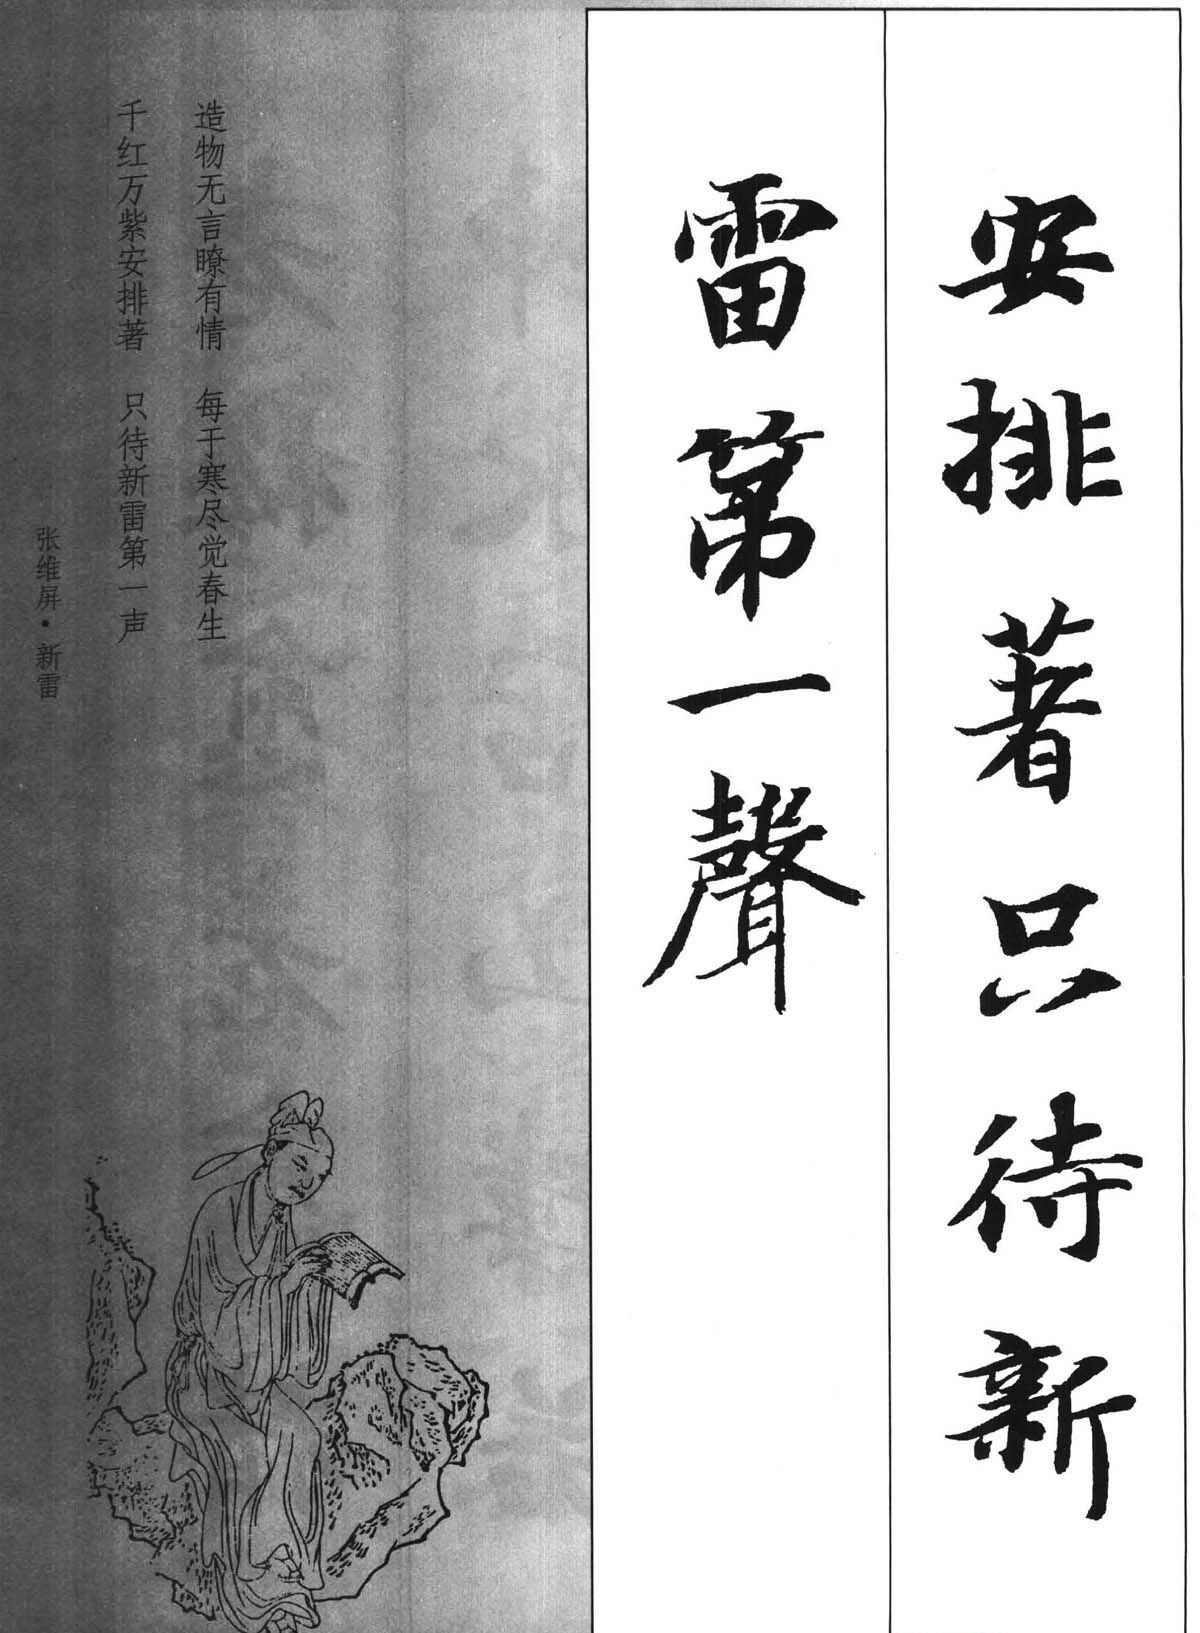 安排著只待新
雷第一聲
造物无言瞭有情 每于寒尽觉春生
千红万紫安排著 只待新雷第一声
张维屏·新雷